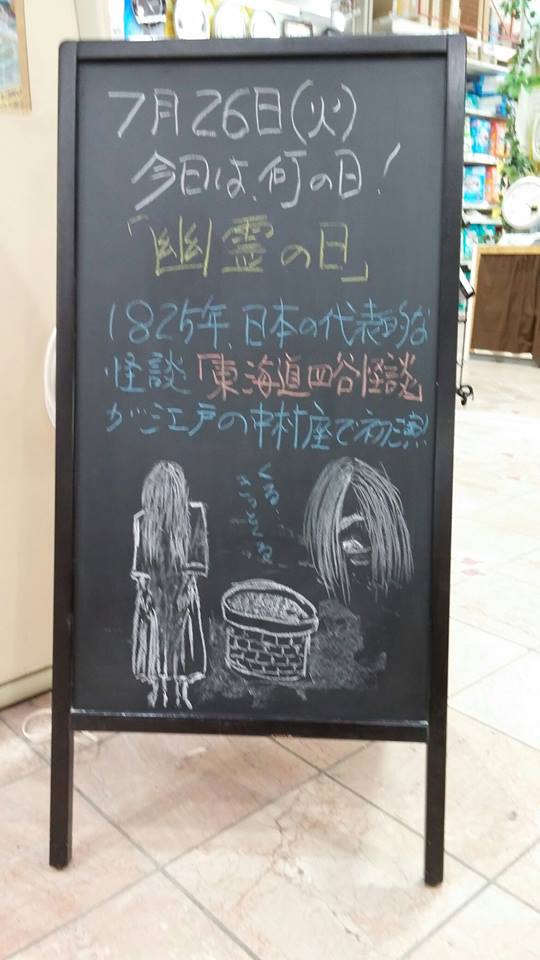 7月26日(火)
今日は、何の日!
「幽霊の日」
1825年、日本の代表的な
怪談「東海道四谷怪談」
が江戸の中村座で初演
くる、
きっとくる